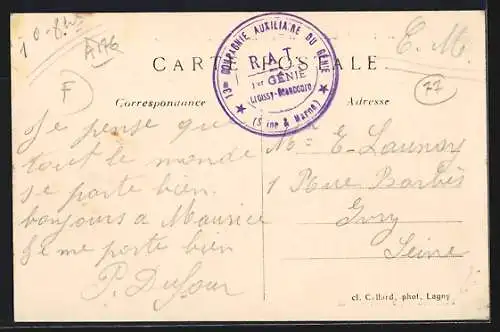 10-8
A176
E. M.
13me COMPAGNIE AUXILIAIRE DU GÉNIE
R.A.T.
1er GÉNIE
(Seine & Marne)
CARTE POSTALE
F
77
Correspondance
Adresse
Je pense que
tout le monde
se porte bien
bonjours a Maurice
Je me porte bien
P. Dufour
M E. Launay
1 Rue Barbès
Ivry
Seine
cl. C. Bard, phot, Lagny